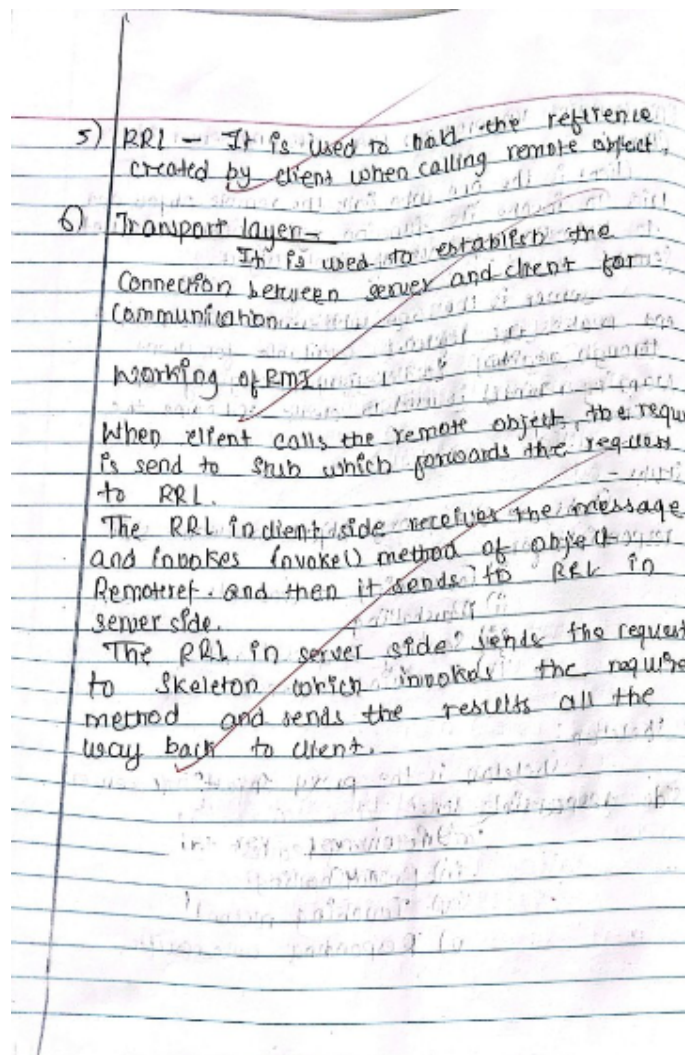 5) RRL - It is used to hold the refrence
created by client when calling remote object.
6) Transport layer -
It is used to establish the
Connection between server and client for
Communication.
Working of RMI
When client calls the remote object, the requ
is send to Stub which forwards the request
to RRL.
The RRL in client side receives the message
and invokes invoke() method of object
Remoteref. and then it sends to RRL in
server side.
The RRL in server side sends the request
to Skeleton which invokes the require
method and sends the results all the
way back to client.